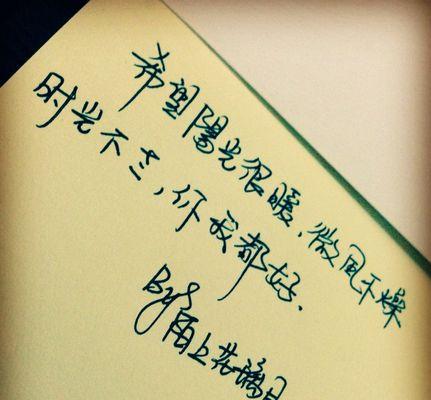 希望陽光很暖，微風不燥
时光不老，你我都好.
By 陌上花滿